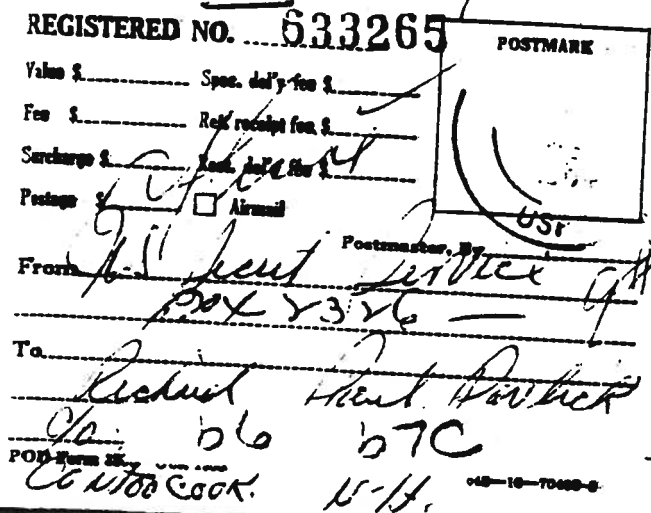 REGISTERED NO. 633265
POSTMARK
Value $ Spec. del'y fee $
Fee $ Ret. receipt fee $
Surcharge $ Rest. del'y fee $
Postage $ Airmail
Postmaster, By
From U.S. Secret Service
Box 2326
To
Richard Pavlick
c/o b6 b7C
POD Form
CONTOOCOOK. N-H.